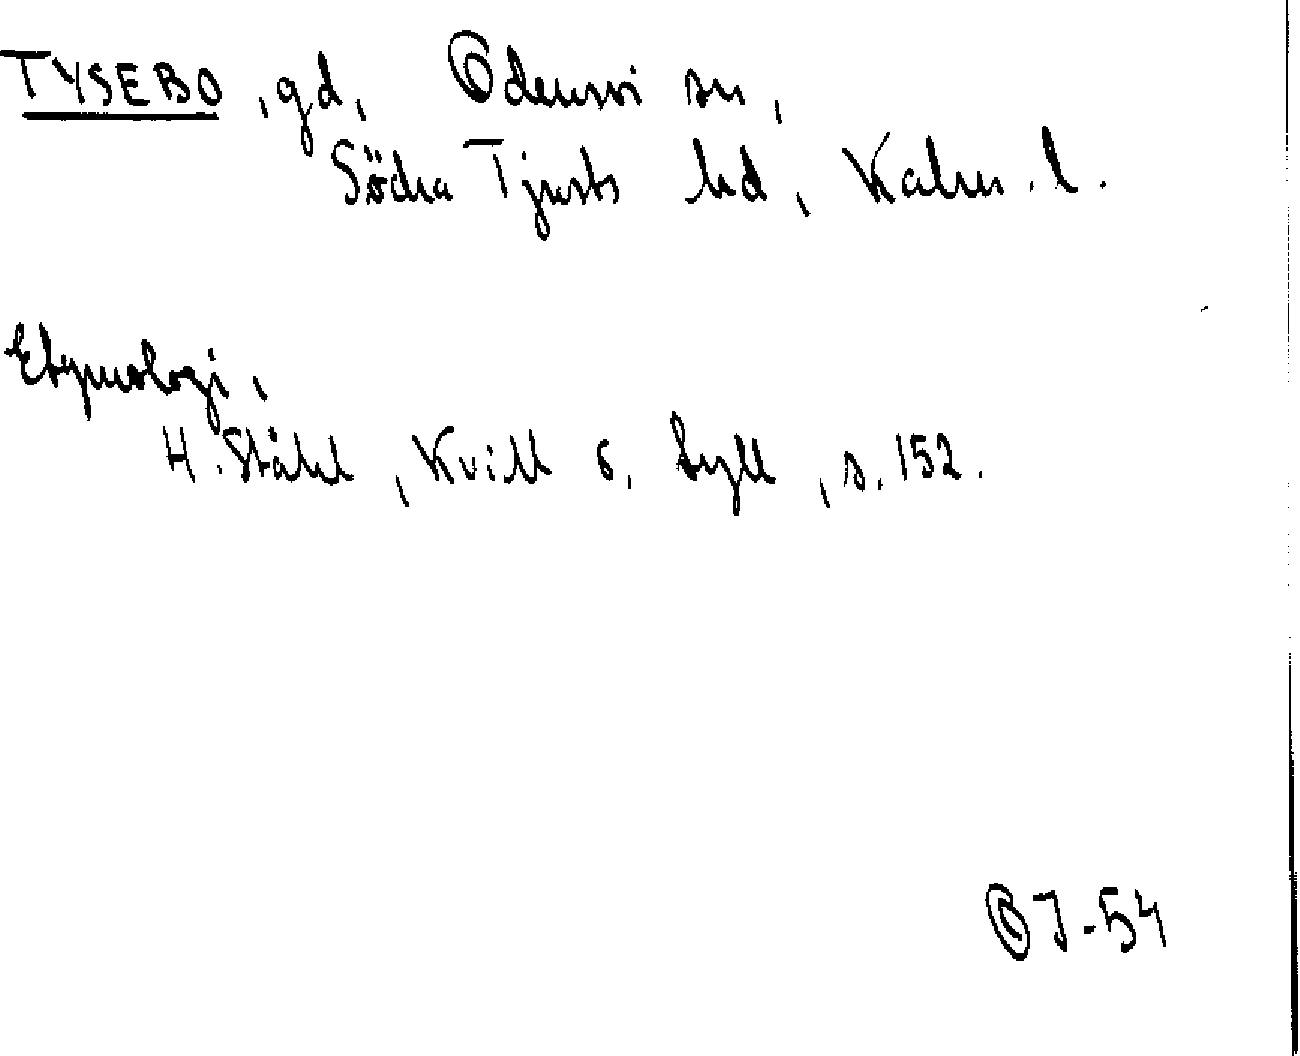 TYSEBO, gd, Odensvi sn,
Södra Tjusts hd, Kalm. l.
Etymologi,
H. Ståhl, Kvill o. Tyll, s. 152.
OJ-54